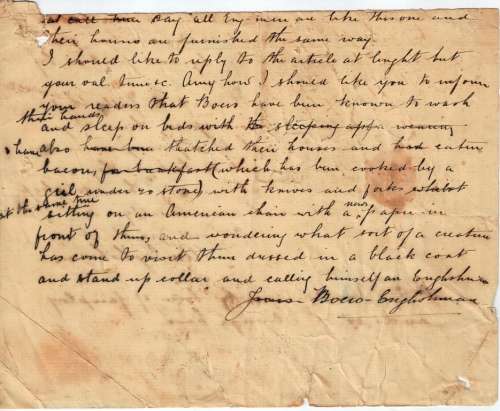 Say all Eng men are like this one and
their houses are furnished the same way.
I should like to reply to the article at lenght but
your val. time &c. Any how I should like you to inform
your readers that Boers have been known to wash
their hands
and sleep on beds with the sleeping
have also have been thatched their houses and had eaten
bacon, for breakfast (which has been cooked by a
girl under 20 stone) with knives and forks whilst
at the same time
sitting on an American chair with a news paper in
front of them, and wondering what sort of a creature
has come to visit them dressed in a black coat
and stand up collar and calling himself an Englishman
Yours Boero-Englishman